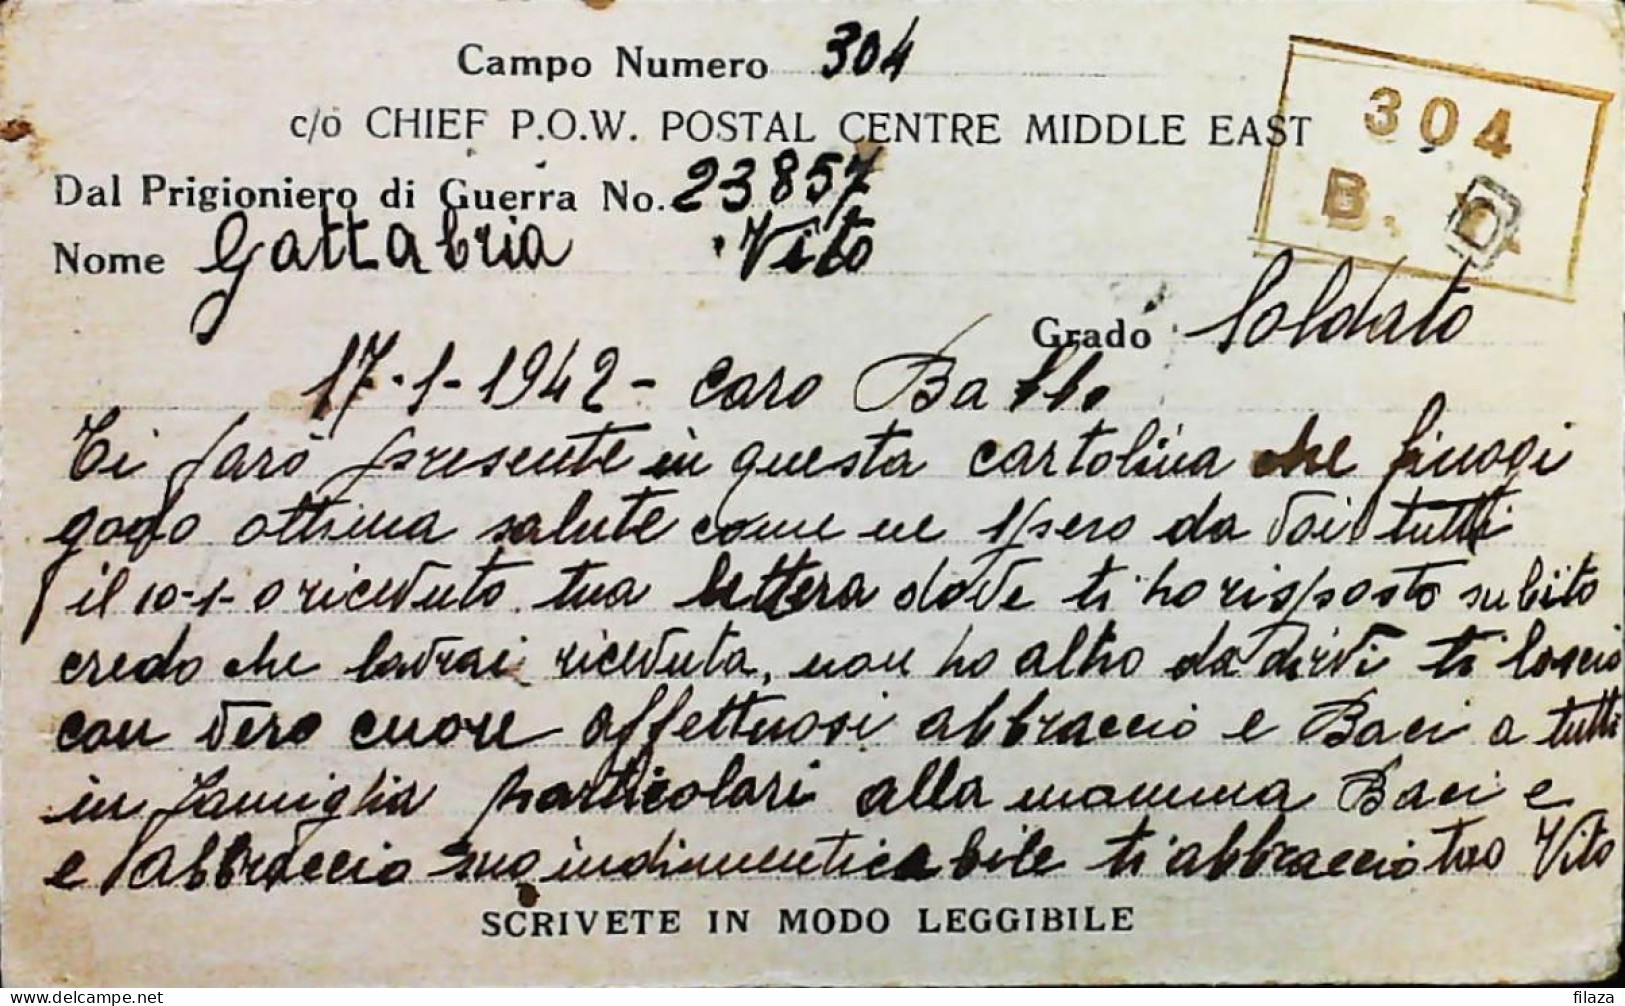 Campo Numero 304
c/o CHIEF P.O.W. POSTAL CENTRE MIDDLE EAST
304
B.
Dal Prigioniero di Guerra No. 23857
Nome Gattabria Vito
Grado Soldato
17-1-1942 - caro Babbo
Ti farò presente in questa cartolina che finogi
godo ottima salute come ne spero da voi tutti
il 10-1- o ricevuto tua lettera dove ti ho risposto subito
credo che lavrai ricevuta, non ho altro da dirvi ti lascio
con vero cuore affettuosi abbraccio e Baci a tutti
in famiglia particolari alla mamma Baci e
e abbraccio suo indimenticabile ti abbraccio tuo Vito
SCRIVETE IN MODO LEGGIBILE
delcampe.net
filaza